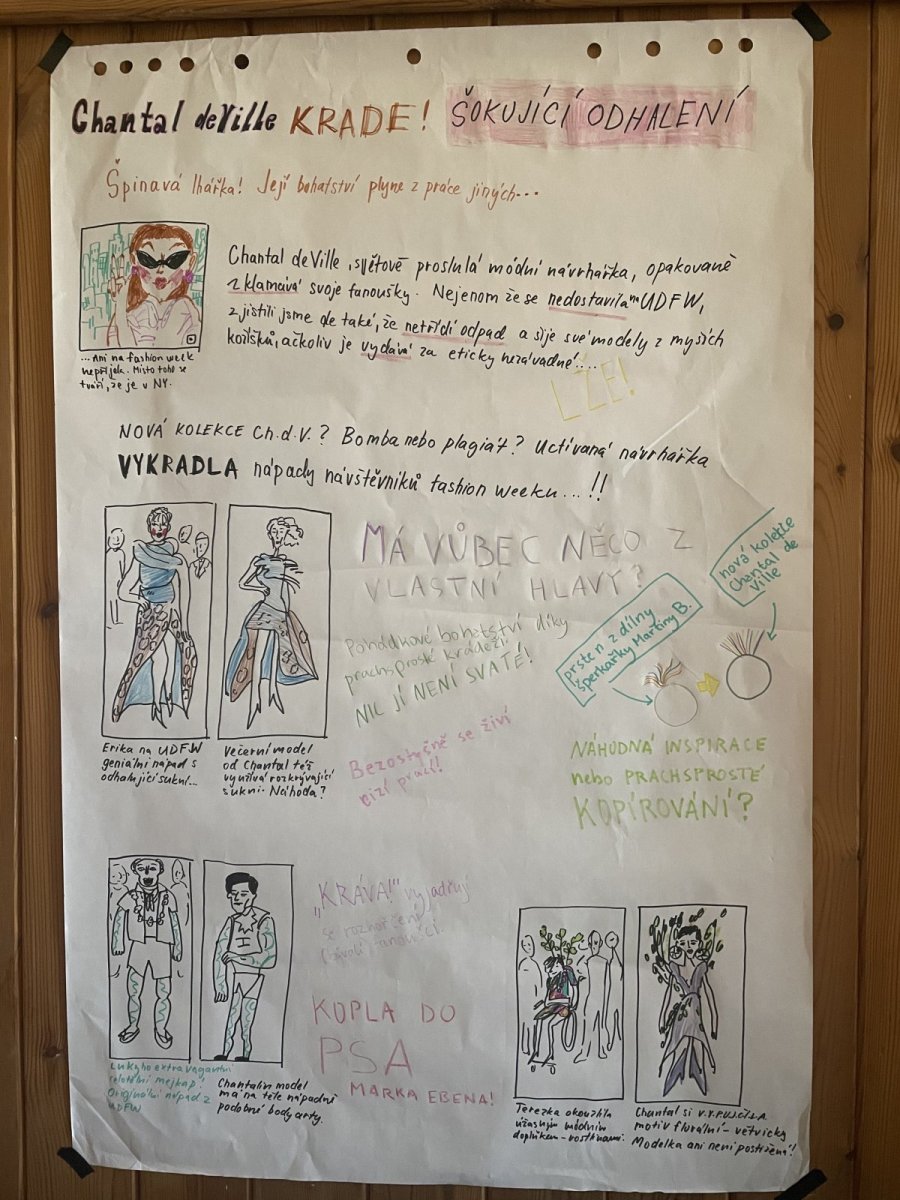 Chantal deVille KRADE! ŠOKUJÍCÍ ODHALENÍ
Špinavá lhářka! Její bohatství plyne z práce jiných...
Chantal deVille, světově proslulá módní návrhářka, opakovaně
zklamává svoje fanoušky. Nejenom že se nedostavila na UDFW,
zjistili jsme ale také, že netřídí odpad a šije své modely z myších
kožíšků, ačkoliv je vydává za eticky nezávadné....
LŽE!
...Ani na fashion week
nepřijela. Místo toho se
tváří, že je v NY.
NOVÁ KOLEKCE Ch.d.V.? Bomba nebo plagiát? Uctívaná návrhářka
VYKRADLA nápady návštěvníků fashion weeku...!!
MÁ VŮBEC NĚCO Z
VLASTNÍ HLAVY?
Pohádkové bohatství díky
prachsprosté krádeži.
NIC JÍ NENÍ SVATÉ!
Bezostyšně se živí
cizí prací!
nová kolekce
Chantal de
Ville
prsten z dílny
šperkařky Martiny B.
NÁHODNÁ INSPIRACE
nebo PRACHSPROSTÉ
KOPÍROVÁNÍ?
Erika na UDFW
geniální nápad s
odhalující sukní...
Večerní model
od Chantal též
využívá rozkrývající
sukni. Náhoda?
„KRÁVA!" vyjadřují
se rozhořčení
bývalí fanoušci.
KOPLA DO
PSA
MARKA EBENA!
Lukyho extravagantní
celotělní mejkap.
Originální nápad z
UDFW
Chantalin model
má na těle nápadně
podobné bodyarty.
Terezka okouzlila
úžasným módním
doplňkem - rostlinami.
Chantal si VYPUJČILA
motiv florální - větvičky
Modelka ani není postižená!